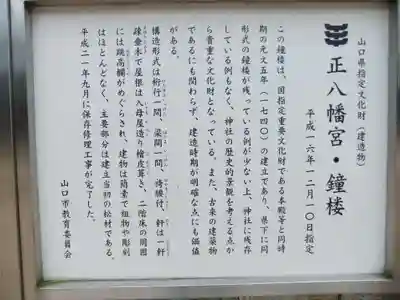 山口県指定文化財(建造物)
正八幡宮・鐘楼
平成一六年一二月一〇日指定
この鐘楼は、国指定重要文化財である本殿等と同時
期の元文五年(一七四〇)の建立であり、県下に同
形式の鐘楼が残っている例が少ない上、神社に残存
している例もなく、神社の歴史的景観を考える点か
ら貴重な文化財となっている。また、古来の建築物
であるにも関わらず、建造時期が明確な点にも価値
がある。
構造形式は桁行一間、梁間一間、袴腰付、軒は一軒
疎垂木で屋根は入母屋造り檜皮葺き、二階床の周囲
には跳高欄がめぐらされ、建物は簡素で組物や彫刻
はほとんどなく、主要部分は建立当初の松材である。
平成二一年九月に保存修理工事が完了した。
山口市教育委員会